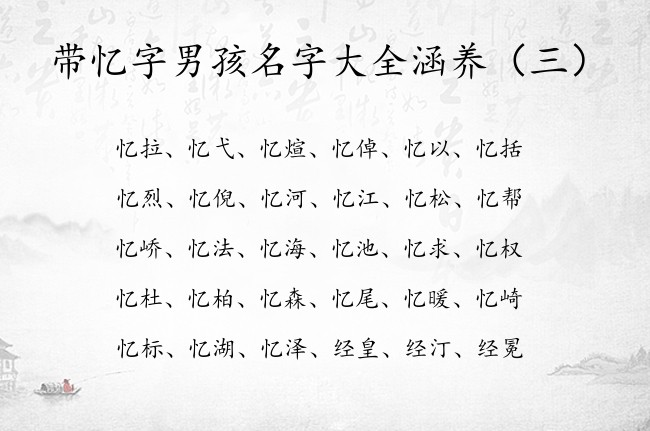 带忆字男孩名字大全涵养（三）
忆拉、忆弋、忆煊、忆倬、忆以、忆括
忆烈、忆倪、忆河、忆江、忆松、忆帮
忆峤、忆法、忆海、忆池、忆求、忆权
忆杜、忆柏、忆森、忆尾、忆暖、忆崎
忆标、忆湖、忆泽、经皇、经汀、经冕